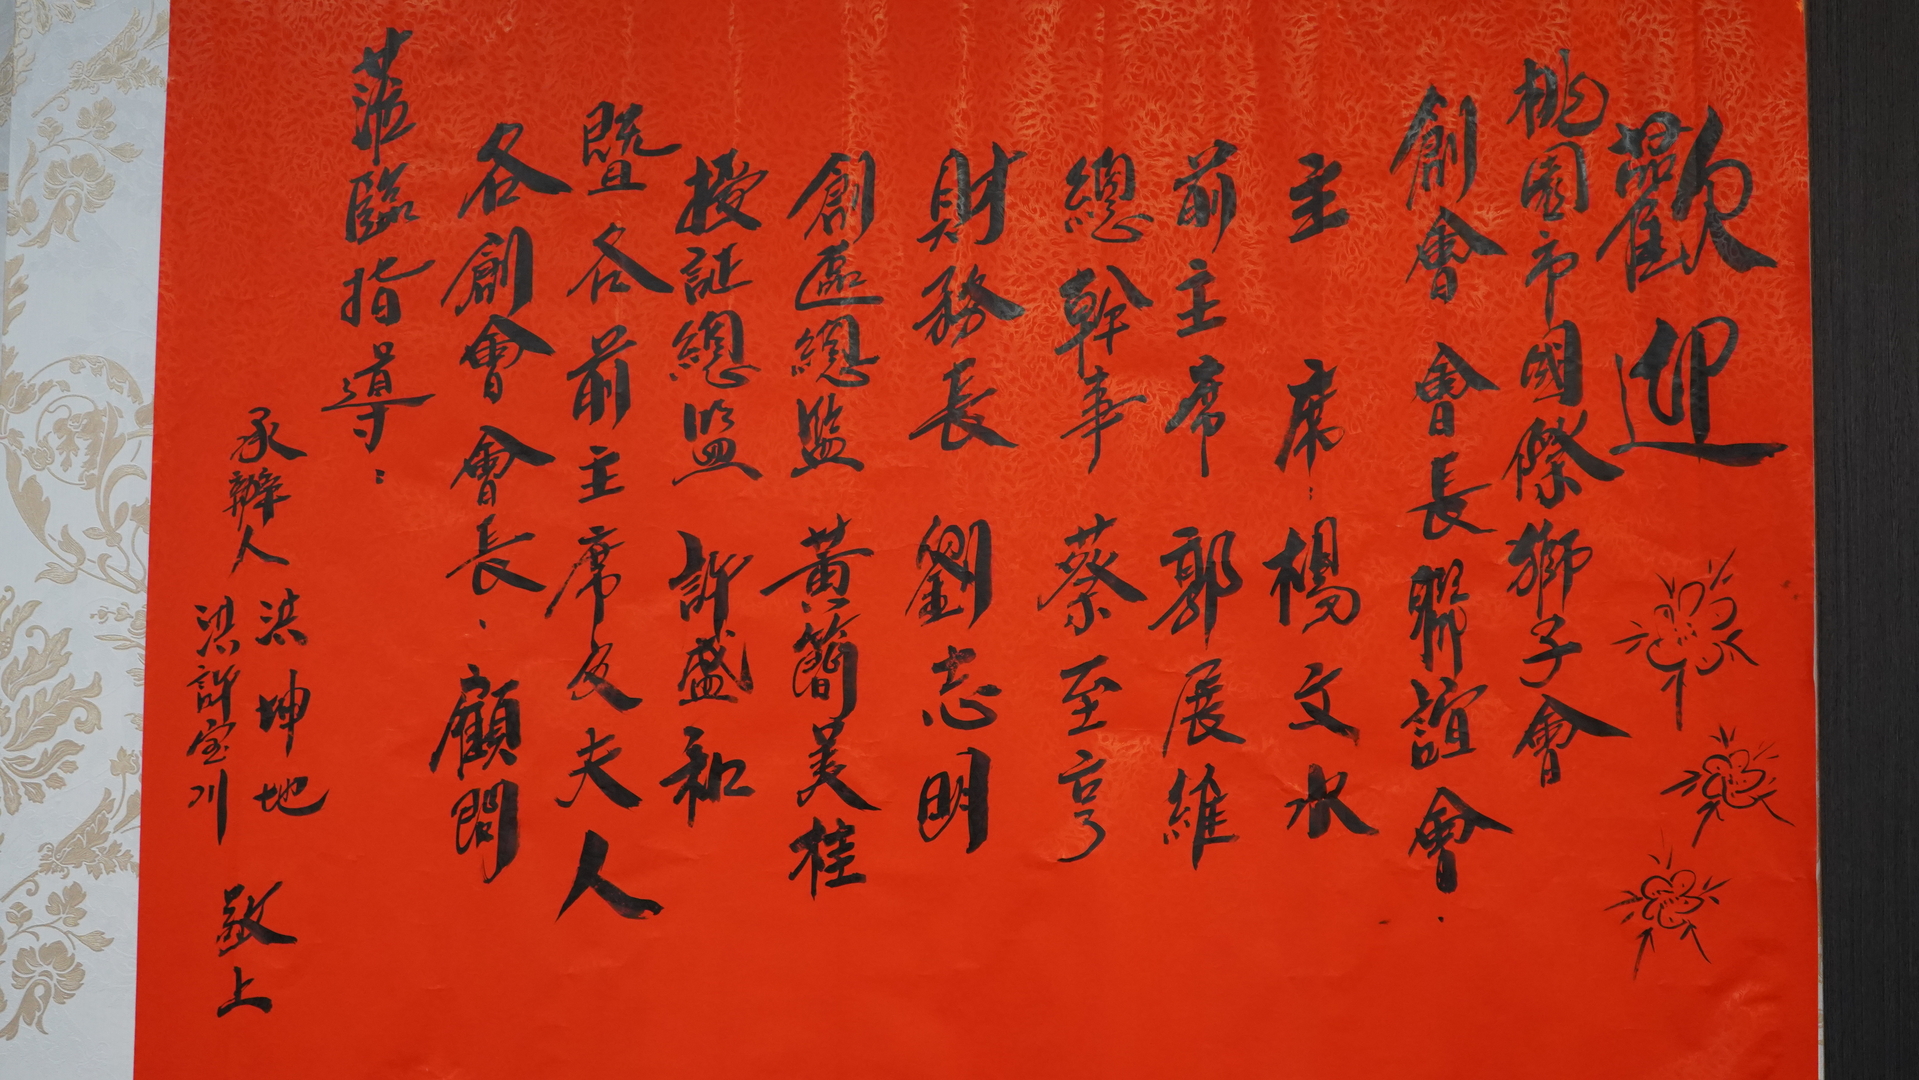 歡迎
桃園市國際獅子會
創會會長聯誼會.
主席:楊文水
前主席 郭展維
總幹事 蔡至亨
財務長 劉志明
創區總監 黃簡美桂
授証總監 許盛和
暨各前主席及夫人
各創會會長、顧問
蒞臨指導:
承辦人 洪坤地
洪許宝川
敬上